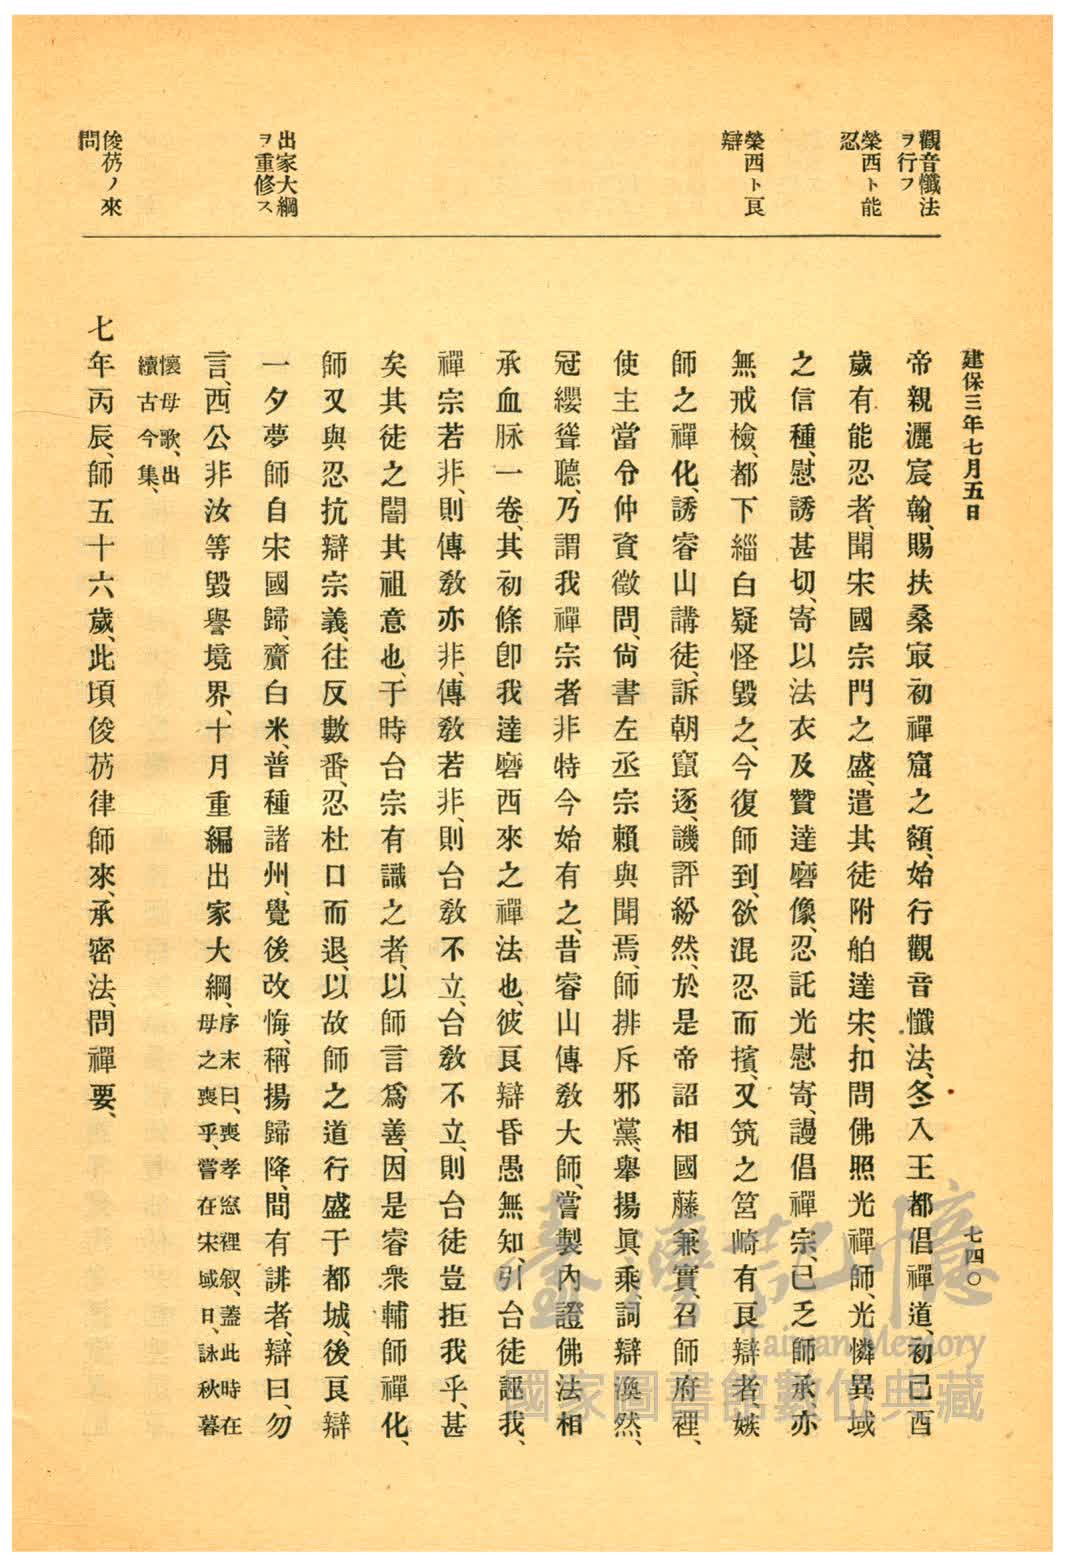 建保三年七月五日
七四〇
觀音懺法
ヲ行フ
榮西ト能
忍
榮西ト良
辯
出家大綱
ヲ重修ス
俊芿ノ來
問
帝親灑宸翰、賜扶桑㝡初禪窟之額、始行觀音懺法、冬入王都倡禪道、初已酉
歲有能忍者、聞宋國宗門之盛、遣其徒附舶達宋、扣問佛照光禪師、光憐異域
之信種、慰誘甚切、寄以法衣及贊達磨像、忍託光慰寄、謾倡禪宗、已乏師承、亦
無戒檢、都下緇白疑怪毀之、今復師到、欲混忍而擯、又筑之筥崎有良辯者、嫉
師之禪化、誘睿山講徒、訴朝竄逐、譏評紛然、於是帝詔相國藤兼實、召師府裡、
使主當令仲資徵問、尙書左丞宗賴與聞焉、師排斥邪黨、舉揚眞乘、詞辯渙然、
冠纓聳聽、乃謂我禪宗者非特今始有之、昔睿山傳敎大師、嘗製內證佛法相
承血脉一卷、其初條卽我達磨西來之禪法也、彼良辯昏愚無知、引台徒誣我、
禪宗若非、則傳敎亦非、傳敎若非、則台敎不立、台敎不立、則台徒豈拒我乎、甚
矣其徒之闇其祖意也、于時台宗有識之者、以師言爲善、因是睿衆輔師禪化、
師又與忍抗辯宗義、往反數番、忍杜口而退、以故師之道行盛于都城、後良辯
一夕夢師自宋國歸、齎白米、普種諸州、覺後改悔、稱揚歸降、間有誹者、辯曰、勿
言、西公非汝等毀譽境界、十月重編出家大綱、
序末曰、喪孝窓裡叙、蓋此時在
母之喪乎、嘗在宋域日、詠秋暮
懷母歌、出
續古今集、
七年丙辰、師五十六歲、此頃俊芿律師來、承密法、問禪要、
臺灣記憶
Taiwan Memory
國家圖書館數位典藏